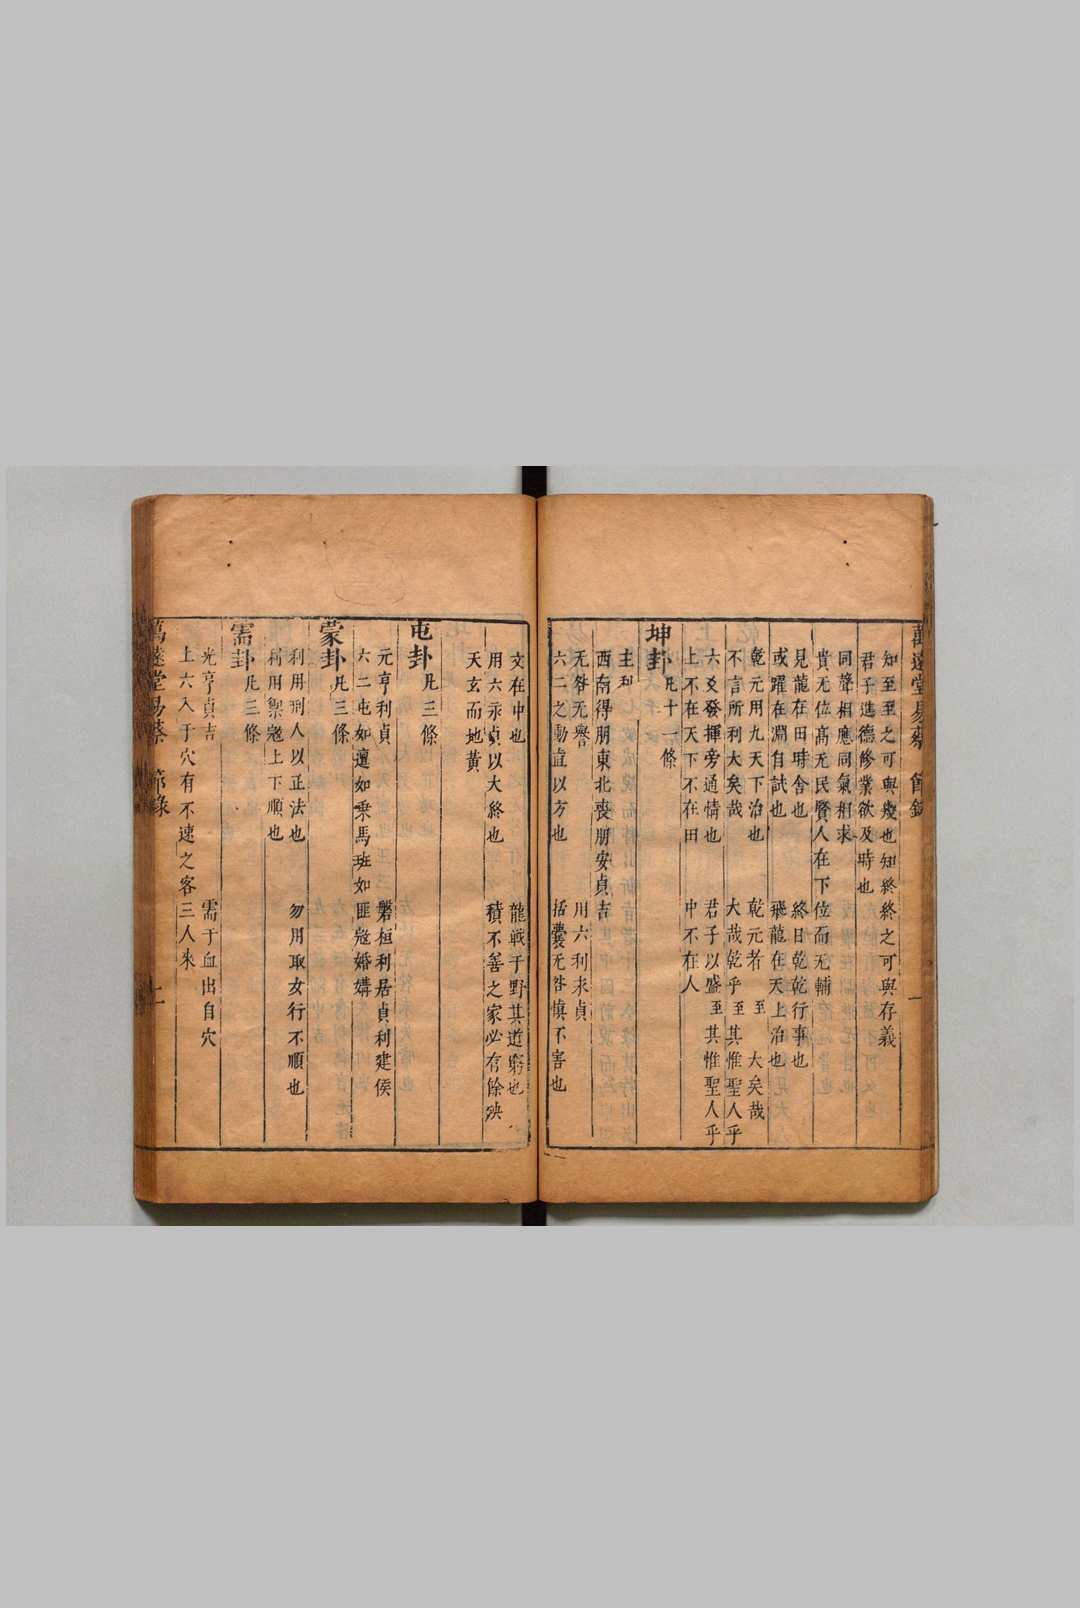 知至至之可與幾也知終終之可與存義
君子進德修業欲及時也
同聲相應同氣相求
貴无位高无民賢人在下位而无輔
見龍在田時舍也 終日乾乾行事也
或躍在淵自試也 飛龍在天上治也
乾元用九天下治也 乾元者 至 大矣哉
不言所利大矣哉 大哉乾乎 至 其惟聖人乎
六爻發揮旁通情也 君子以盛 至 其惟聖人乎
上不在天下不在田 中不在人
坤卦 凡十一條
主利
西南得朋東北喪朋安貞吉
无咎无譽 用六利永貞
六二之動直以方也 括囊无咎慎不害也
文在中也 龍戰于野其道窮也
用六永貞以大終也 積不善之家必有餘殃
天玄而地黃
屯卦 凡三條
元亨利貞 磐桓利居貞利建侯
六二屯如邅如乘馬班如匪寇婚媾
蒙卦 凡三條
利用刑人以正法也 勿用取女行不順也
利用禦寇上下順也
需卦 凡三條
光亨貞吉 需于血出自穴
上六入于穴有不速之客三人來
萬遠堂易蔡 節錄